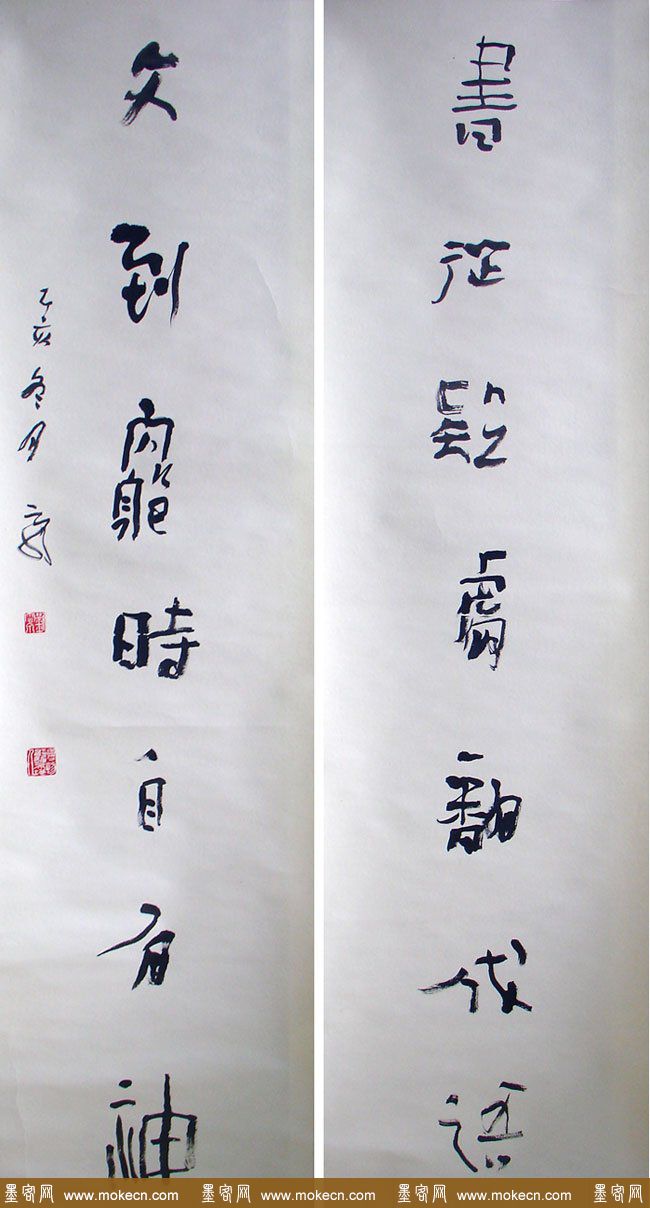 書從疑處翻成語
文到窮時自有神
乙亥冬月
墨客网 www.mokecn.com 墨客网 www.mokecn.com 墨客网 www.mokecn.com